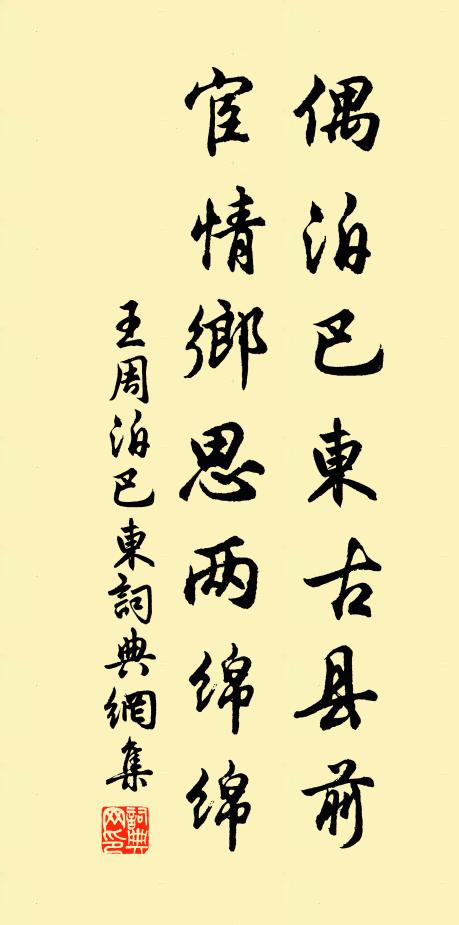 偶泊巴東古县前
宦情鄉思两绵绵
王周泊巴東詞典網集
詞典网印